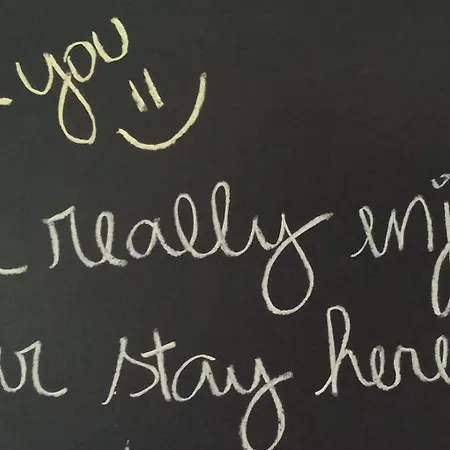 you
really enj
ur stay here